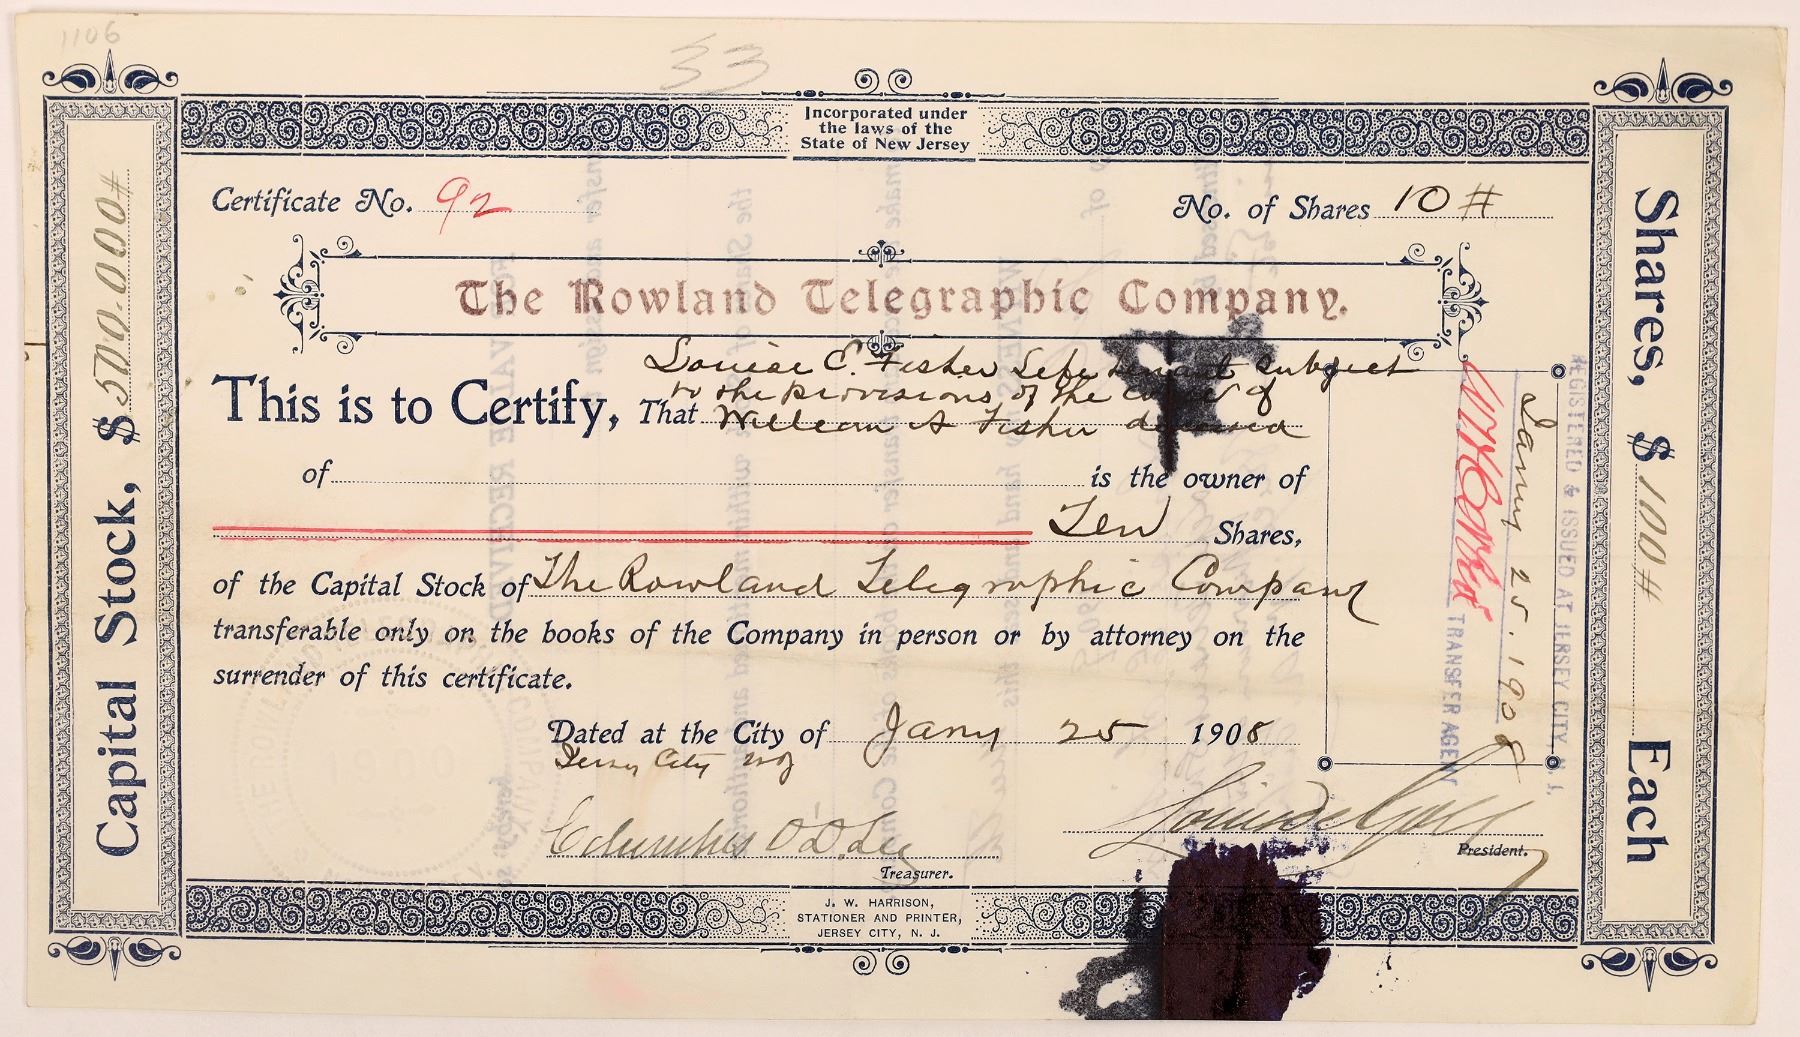 1106
33
Incorporated under
the laws of the
State of New Jersey
Certificate No. 92
No. of Shares 10 #
The Rowland Telegraphic Company.
Louise E. Fisher Life tenant subject
to the provisions of the will of
This is to Certify, That William A Fisher deceased
of is the owner of
Ten Shares,
of the Capital Stock of The Rowland Telegraphic Company
transferable only on the books of the Company in person or by attorney on the
surrender of this certificate.
Dated at the City of Jany 25 1908
Jersey City NJ
Columbus O'D. Lee
Treasurer.
President.
J. W. HARRISON,
STATIONER AND PRINTER,
JERSEY CITY, N. J.
Capital Stock, $ 500.000 #
Shares, $ 100 # Each
REGISTERED & ISSUED AT JERSEY CITY, N. J.
Janny 25. 1908
TRANSFER AGENT